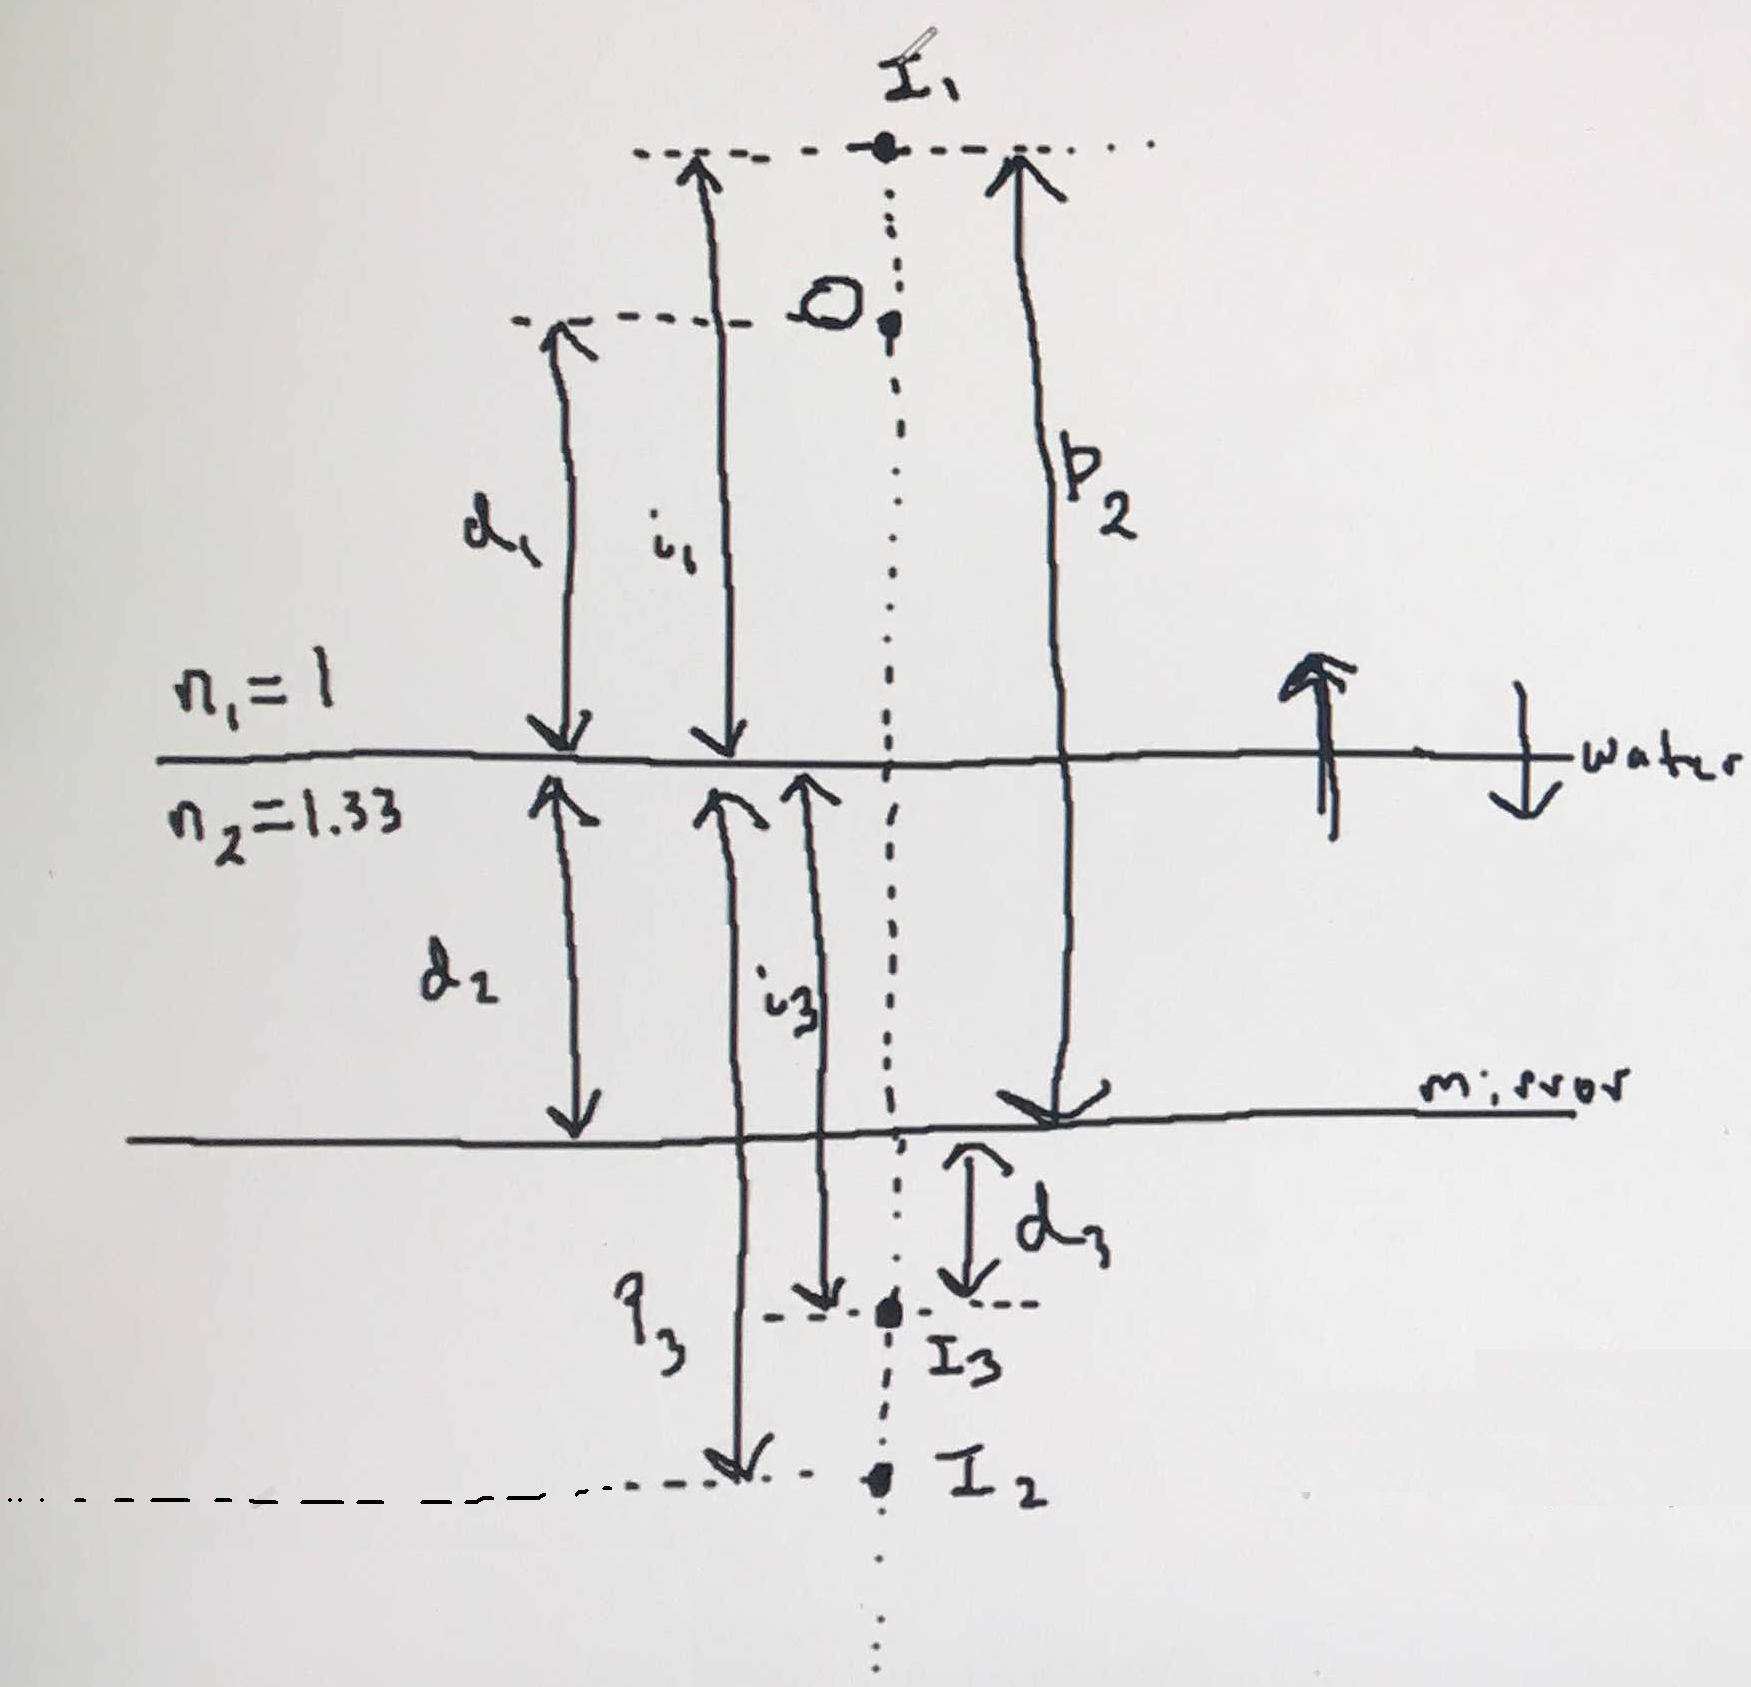 I₁
O
d₁
i₁
p₂
n₁ = 1
water
n₂ = 1.33
d₂
i₃
mirror
d₃
q₃
I₃
I₂